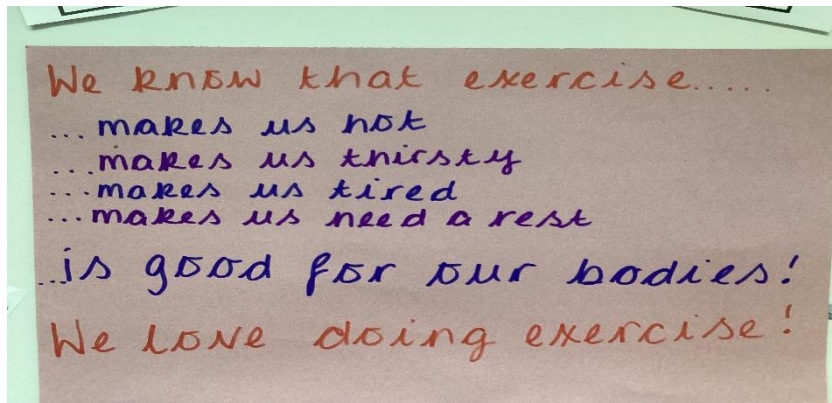 We know that exercise.....
...makes us hot
...makes us thirsty
...makes us tired
...makes us need a rest
...is good for our bodies!
We love doing exercise!